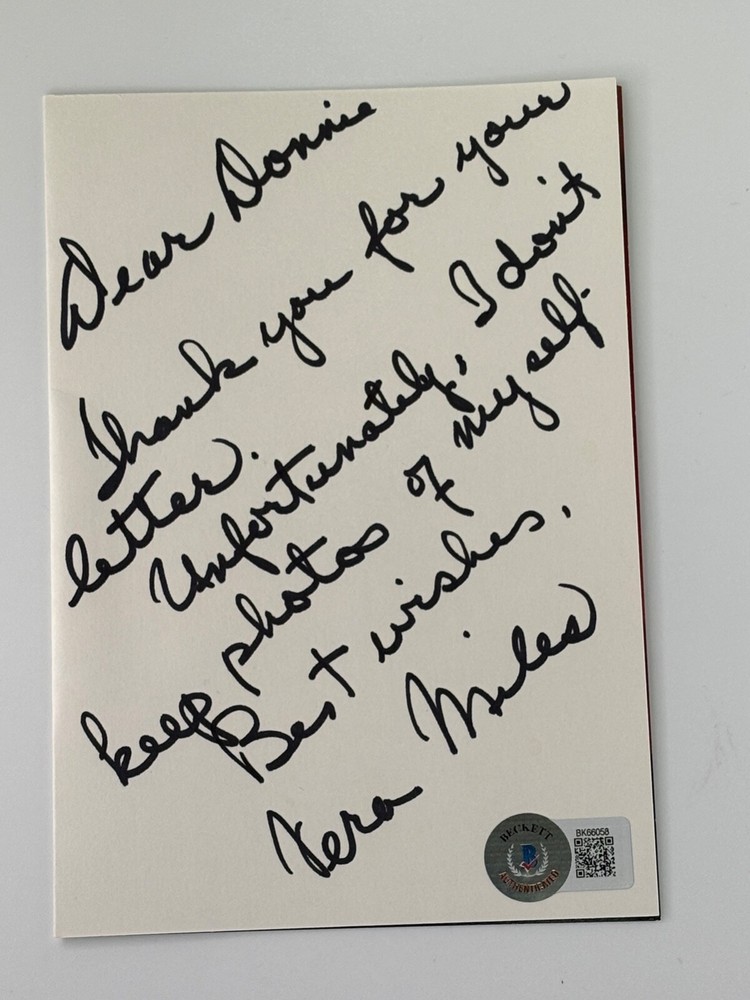 Dear Donnie
Thank you for your
letter.
Unfortunately, I don't
keep photos of myself.
Best wishes.
Vera Miles
BECKETT
B
AUTHENTICATED
BK66058